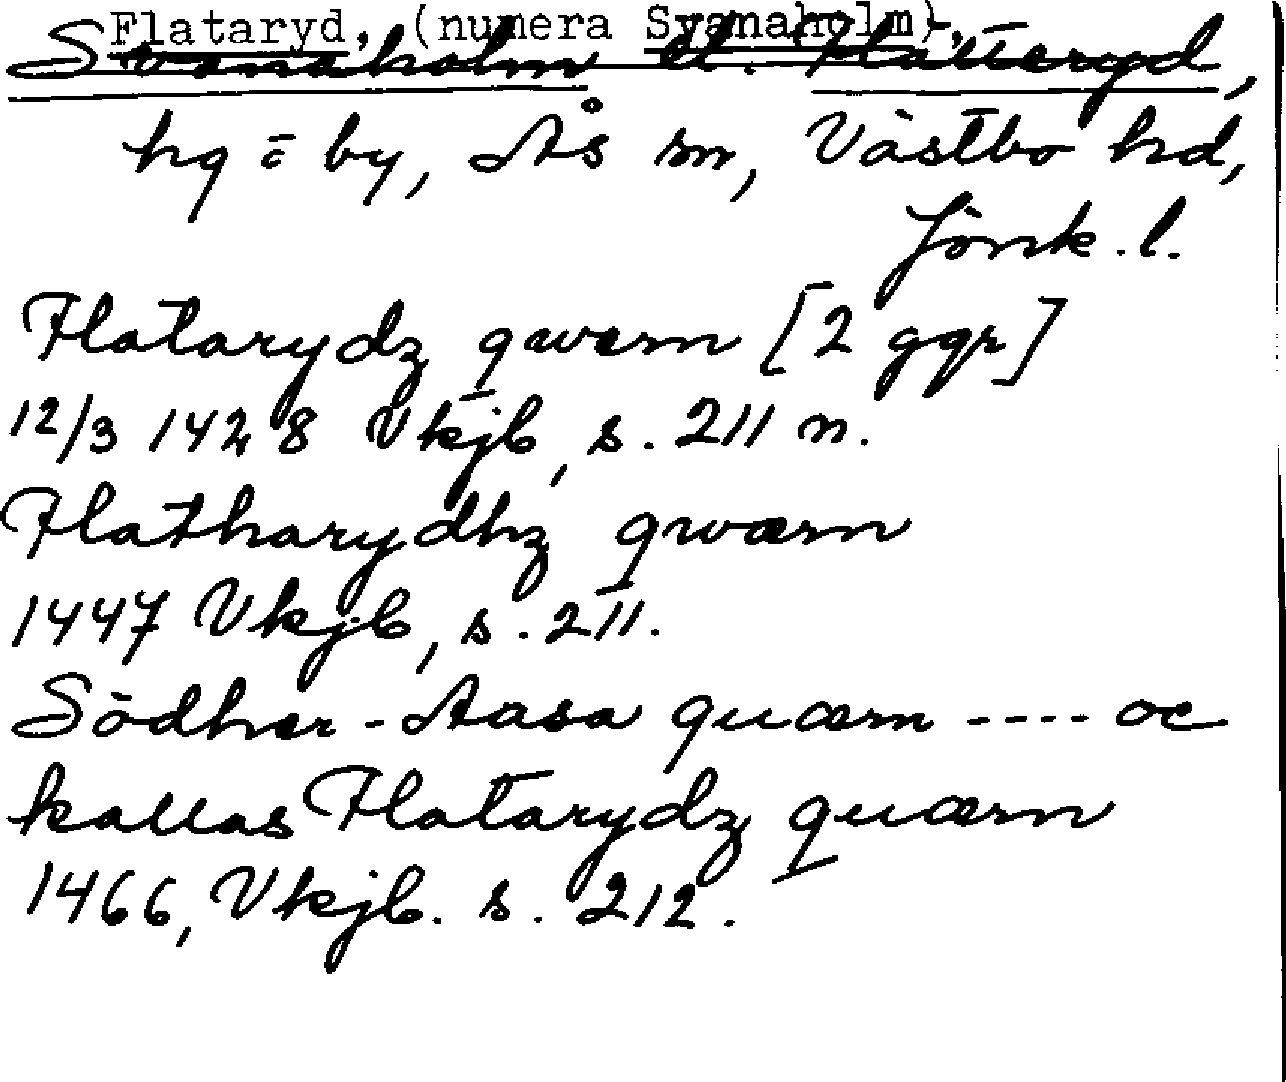 Flataryd, (numera Svanaholm),
Svanaholm el. Flatteryd,
hg o by, Ås sn, Västbo hd,
Jönk. l.
Flatarydz qwærn [2 ggr]
12/3 1428 Vkjb, s. 211 n.
Flatharydhz qwærn
1447 Vkjb, s. 211.
Södher-Aasa quærn ---- oc
kallas Flatarydz quærn
1466, Vkjb. s. 212.